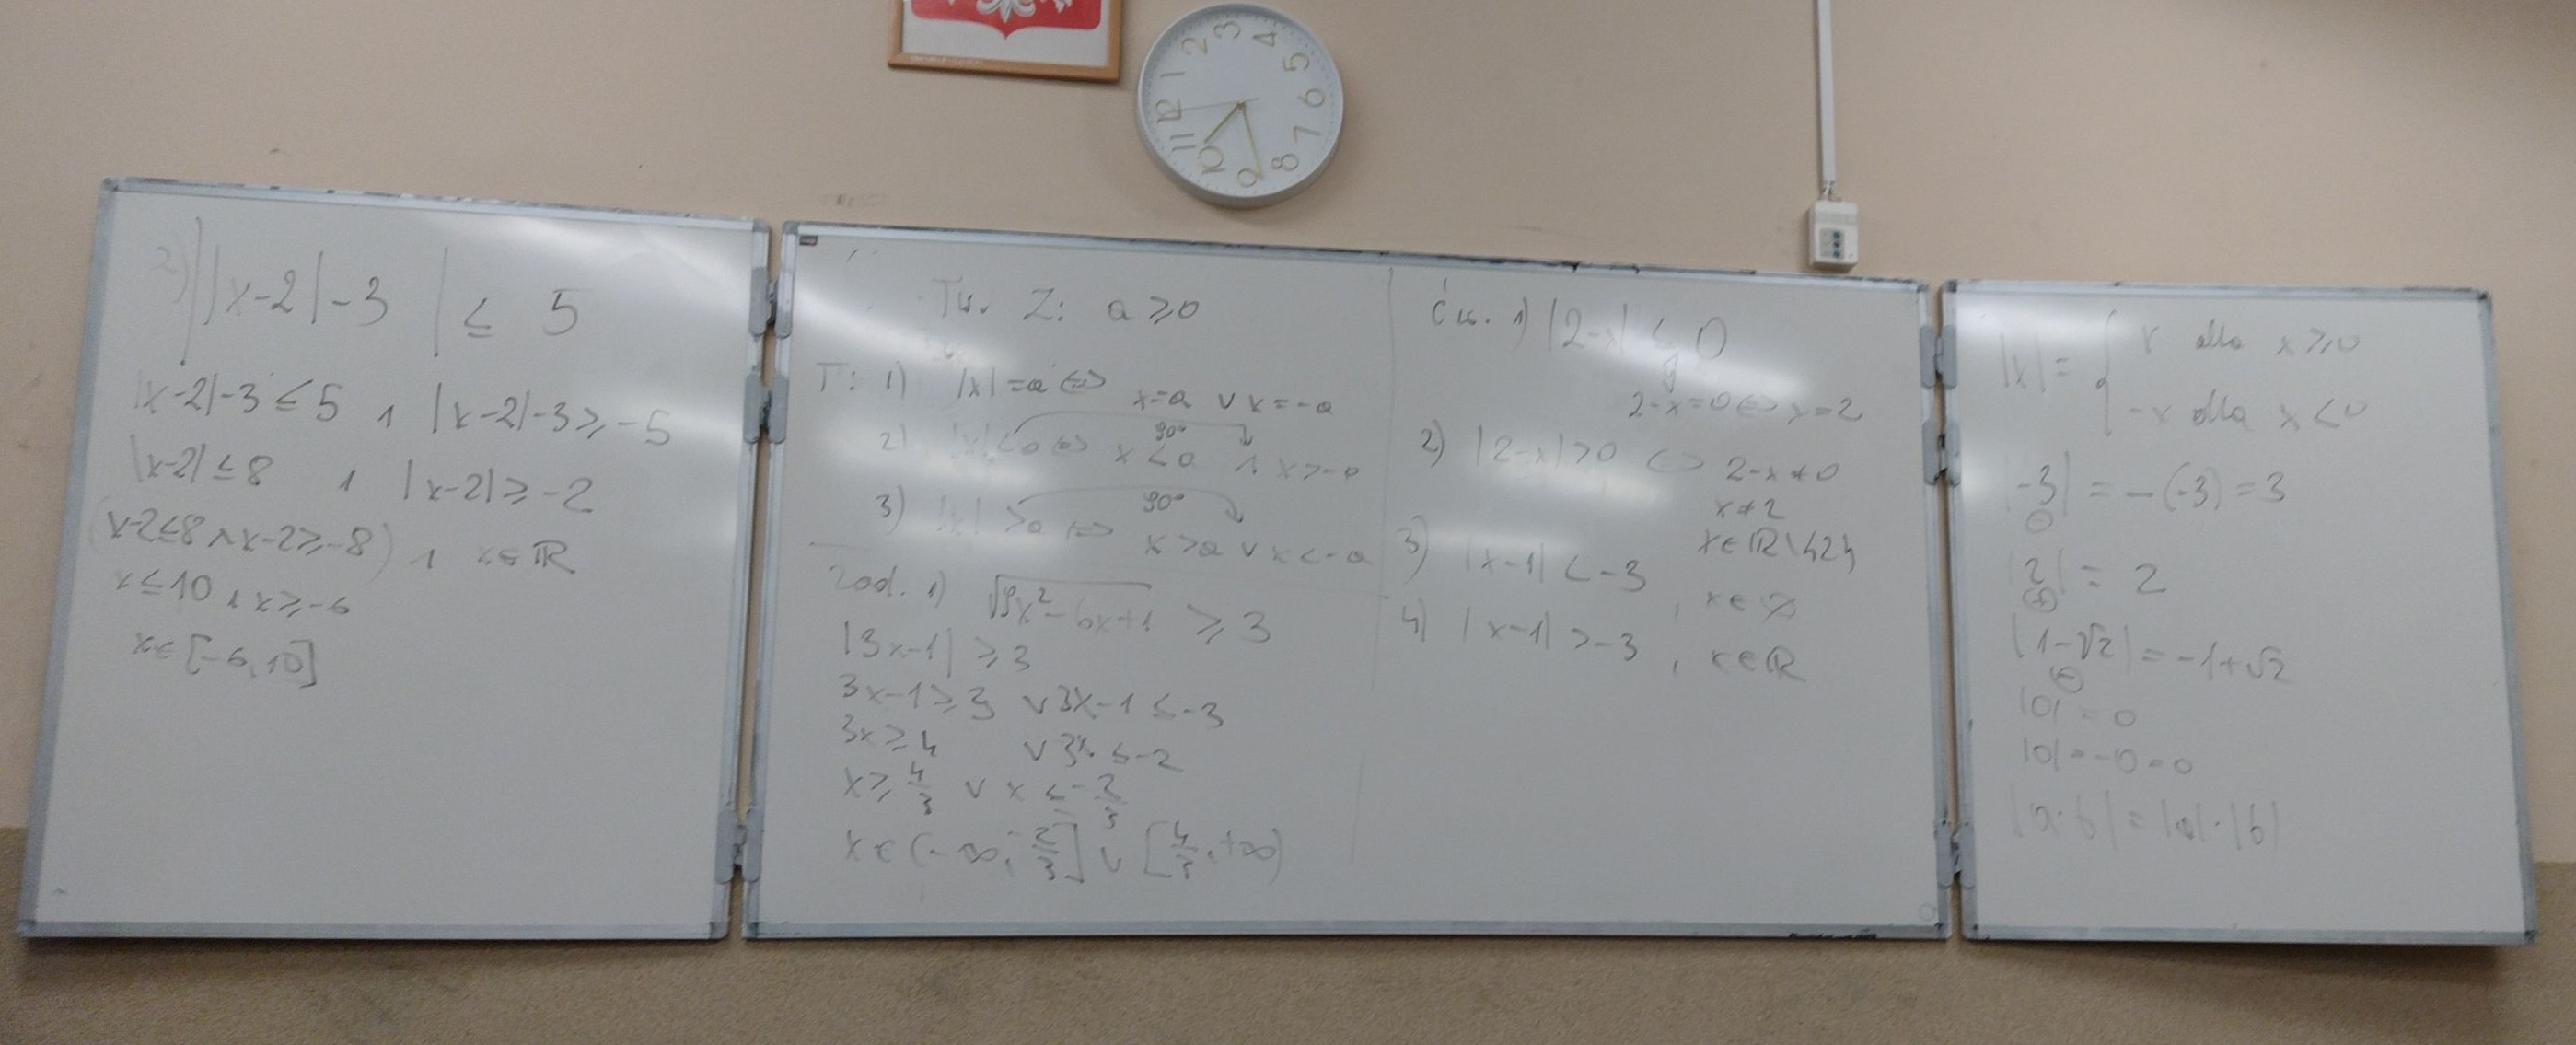 2) ||x-2|-3| ≤ 5
|x-2|-3 ≤ 5 ∧ |x-2|-3 ≥ -5
|x-2| ≤ 8 ∧ |x-2| ≥ -2
(x-2≤8 ∧ x-2≥-8) ∧ x∈ℝ
x≤10 ∧ x≥-6
x∈[-6,10]
Tw. Z: a≥0
T: 1) |x|=a ⇔ x=a ∨ x=-a
2) |x|<a ⇔ x<a ∧ x>-a
90°
3) |x|>a ⇔ x>a ∨ x<-a
90°
Zad. 1) √(9x²-6x+1) ≥ 3
|3x-1| ≥ 3
3x-1≥3 ∨ 3x-1≤-3
3x≥4 ∨ 3x≤-2
x≥4/3 ∨ x≤-2/3
x∈(-∞,-2/3] ∪ [4/3,+∞)
Ćw. 1) |2-x| ≤ 0
2-x=0 ⇔ x=2
2) |2-x|>0 ⇔ 2-x≠0
x≠2
x∈ℝ\{2}
3) |x-1|<-3, x∈∅
4) |x-1|>-3, x∈ℝ
|x| = { x dla x≥0
-x dla x<0
|-3| = -(-3) = 3
|2| = 2
|1-√2| = -1+√2
|0| = 0
|0| = -0 = 0
|a·b| = |a|·|b|
2 3 4
1 5
12 6
11 7
10 9 8